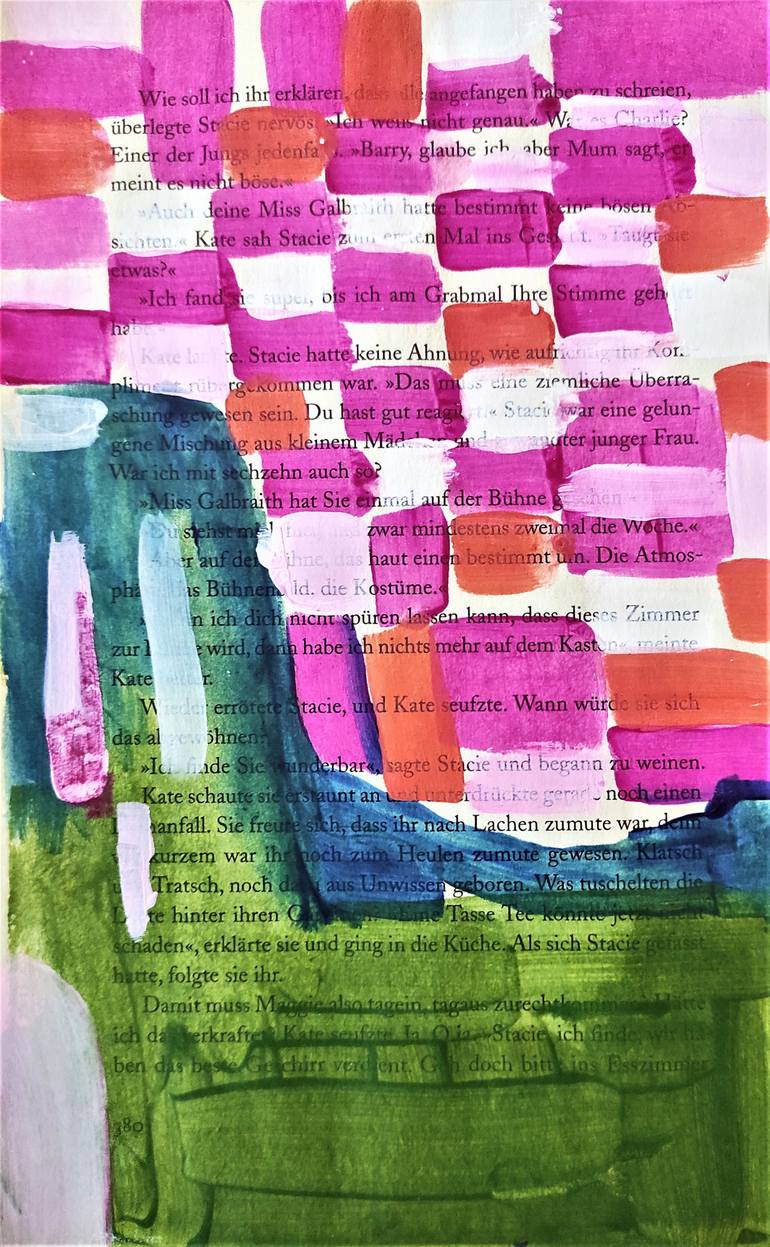 Wie soll ich ihr erklären, dass alle angefangen haben zu schreien,
überlegte Stacie nervös. »Ich weiß nicht genau.« War es Charlie?
Einer der Jungs jedenfalls. »Barry, glaube ich, aber Mum sagt, er
meint es nicht böse.«
»Auch deine Miss Galbraith hatte bestimmt keine bösen Ab-
sichten.« Kate sah Stacie zum ersten Mal ins Gesicht. »Taugt sie
etwas?«
»Ich fand sie super, bis ich am Grabmal Ihre Stimme gehört
habe.«
Kate lachte. Stacie hatte keine Ahnung, wie aufrichtig ihr Kom-
pliment rübergekommen war. »Das muss eine ziemliche Überra-
schung gewesen sein. Du hast gut reagiert.« Stacie war eine gelun-
gene Mischung aus kleinem Mädchen und junger Frau.
War ich mit sechzehn auch so?
»Miss Galbraith hat Sie einmal auf der Bühne gesehen.«
»Du siehst mich zwar mindestens zweimal die Woche.«
Aber auf der Bühne, das haut einen bestimmt um. Die Atmos-
phäre, das Bühnenbild, die Kostüme.«
ich dich nicht spüren lassen kann, dass dieses Zimmer
zur wird, dann habe ich nichts mehr auf dem Kasten«, meinte
Kate
Wieder errötete Stacie, und Kate seufzte. Wann würde sie sich
das abgewöhnen?
»Ich finde Sie wunderbar«, sagte Stacie und begann zu weinen.
Kate schaute sie erstaunt an und unterdrückte gerade noch einen
Sie freute sich, dass ihr nach Lachen zumute war, denn
kurzem war ihr noch zum Heulen zumute gewesen. Klatsch
und Tratsch, noch dazu aus Unwissen geboren. Was tuschelten die
Leute hinter ihren Eine Tasse Tee könnte jetzt nicht
schaden«, erklärte sie und ging in die Küche. Als sich Stacie gefasst
hatte, folgte sie ihr.
Damit muss Maggie also tagein, tagaus zurechtkommen? Hätte
ich das verkraftet? Kate seufzte. Ja. O ja. »Stacie, ich finde, wir ha-
ben das beste Geschirr verdient. Geh doch bitte ins Esszimmer
380